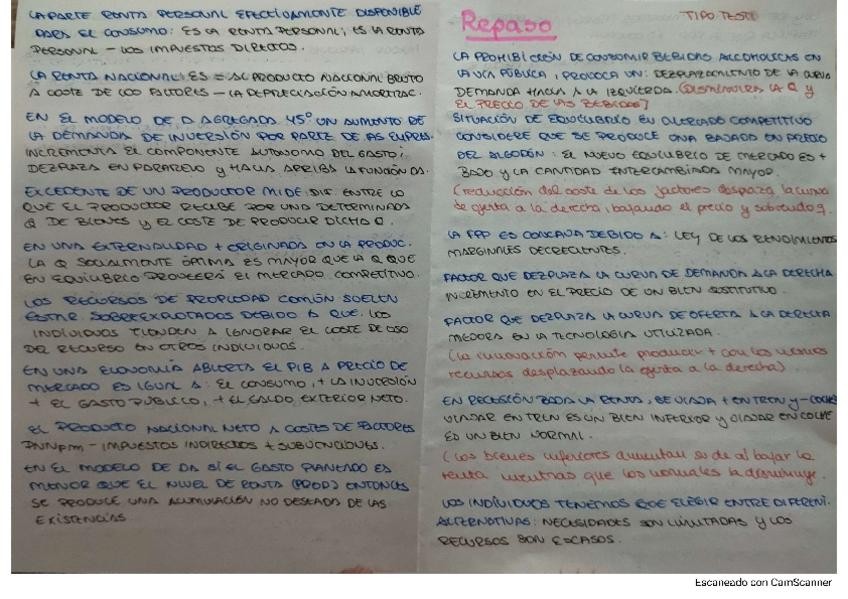 LA PARTE RENTA PERSONAL EFECTIVAMENTE DISPONIBLE
PARA EL CONSUMO: ES LA RENTA PERSONAL; ES LA RENTA
PERSONAL - LOS IMPUESTOS DIRECTOS.
LA RENTA NACIONAL: ES = AL PRODUCTO NACIONAL BRUTO
A COSTE DE LOS FACTORES - LA DEPRECIACIÓN AMORTIZAC.
EN EL MODELO DE D AGREGADA 45º UN AUMENTO DE
LA DEMANDA DE INVERSIÓN POR PARTE DE AS EMPRES.
INCREMENTA EL COMPONENTE AUTONOMO DEL GASTO;
DEZPLAZA EN PARARELO Y HACIA ARRIBA LA FUNCIÓN DA.
EXCEDENTE DE UN PRODUCTOR MIDE: DIF ENTRE LO
QUE EL PRODUCTOR RECIBE POR UNA DETERMINADA
Q DE BIENES Y EL COSTE DE PRODUCIR DICHA Q.
EN UNA EXTERNALIDAD + ORIGINADA EN LA PRODUC.
LA Q SOCIALMENTE ÓPTIMA ES MAYOR QUE LA Q QUE
EN EQUILIBRIO PROVEERÁ EL MERCADO COMPETITIVO.
LOS RECURSOS DE PROPIEDAD COMÚN SUELEN
ESTAR SOBREEXPLOTADOS DEBIDO A QUE: LOS
INDIVIDUOS TIENDEN A IGNORAR EL COSTE DE USO
DEL RECURSO EN OTROS INDIVIDUOS.
EN UNA ECONOMÍA ABIERTA EL PIB A PRECIO DE
MERCADO ES IGUAL A: EL CONSUMO, + LA INVERSIÓN
+ EL GASTO PUBLICO, + EL SALDO EXTERIOR NETO.
EL PRODUCTO NACIONAL NETO A COSTES DE FACTORES
PNNpm - IMPUESTOS INDIRECTOS + SUBVENCIONES.
EN EL MODELO DE DA SÍ EL GASTO PLANEADO ES
MENOR QUE EL NIVEL DE RENTA (PROD) ENTONCES
SE PRODUCE UNA ACUMULACIÓN NO DESEADA DE LAS
EXISTENCIAS
Repaso TIPO TEST
LA PROHIBICIÓN DE CONSUMIR BEBIDAS ALCOHOLICAS EN
LA VÍA PÚBLICA, PROVOCA UN: DEZPLAZAMIENTO DE LA CURVA
DEMANDA HACIA A LA IZQUIERDA. (DISMINUIRÍA LA Q Y
EL PRECIO DE LAS BEBIDAS)
SITUACIÓN DE EQUILIBRIO EN MERCADO COMPETITIVO
CONSIDERE QUE SE PRODUCE UNA BAJADA EN PRECIO
DEL ALGODÓN: EL NUEVO EQUILIBRIO DE MERCADO ES +
BAJO Y LA CANTIDAD INTERCAMBIADA MAYOR.
(reducción del coste de los factores despaza la curva
de oferta a la derecha, bajando el precio y subiendo q.
LA FPP ES CONCAVA DEBIDO A: LEY DE LOS RENDIMIENTOS
MARGINALES DECRECIENTES.
FACTOR QUE DEZPLAZA LA CURVA DE DEMANDA A LA DERECHA
INCREMENTO EN EL PRECIO DE UN BIEN SUSTITUTIVO.
FACTOR QUE DEZPLAZA LA CURVA DE OFERTA A LA DERECHA
MEJORA EN LA TECNOLOGIA UTILIZADA.
(la innovación permite producir + con los mismos
recursos desplazando la oferta a la derecha)
EN RECESIÓN BAJA LA RENTA, SE VIAJA + EN TREN Y - COCHE
VIAJAR EN TREN ES UN BIEN INFERIOR Y VIAJAR EN COCHE
ES UN BIEN NORMAL.
(los bienes inferiores aumentan su de al bajar la
renta mientras que los normales la disminuye.
LOS INDIVIDUOS TENEMOS QUE ELEGIR ENTRE DIFERENT.
ALTERNATIVAS: NECESIDADES SON ILIMITADAS Y LOS
RECURSOS SON ESCASOS.
Escaneado con CamScanner